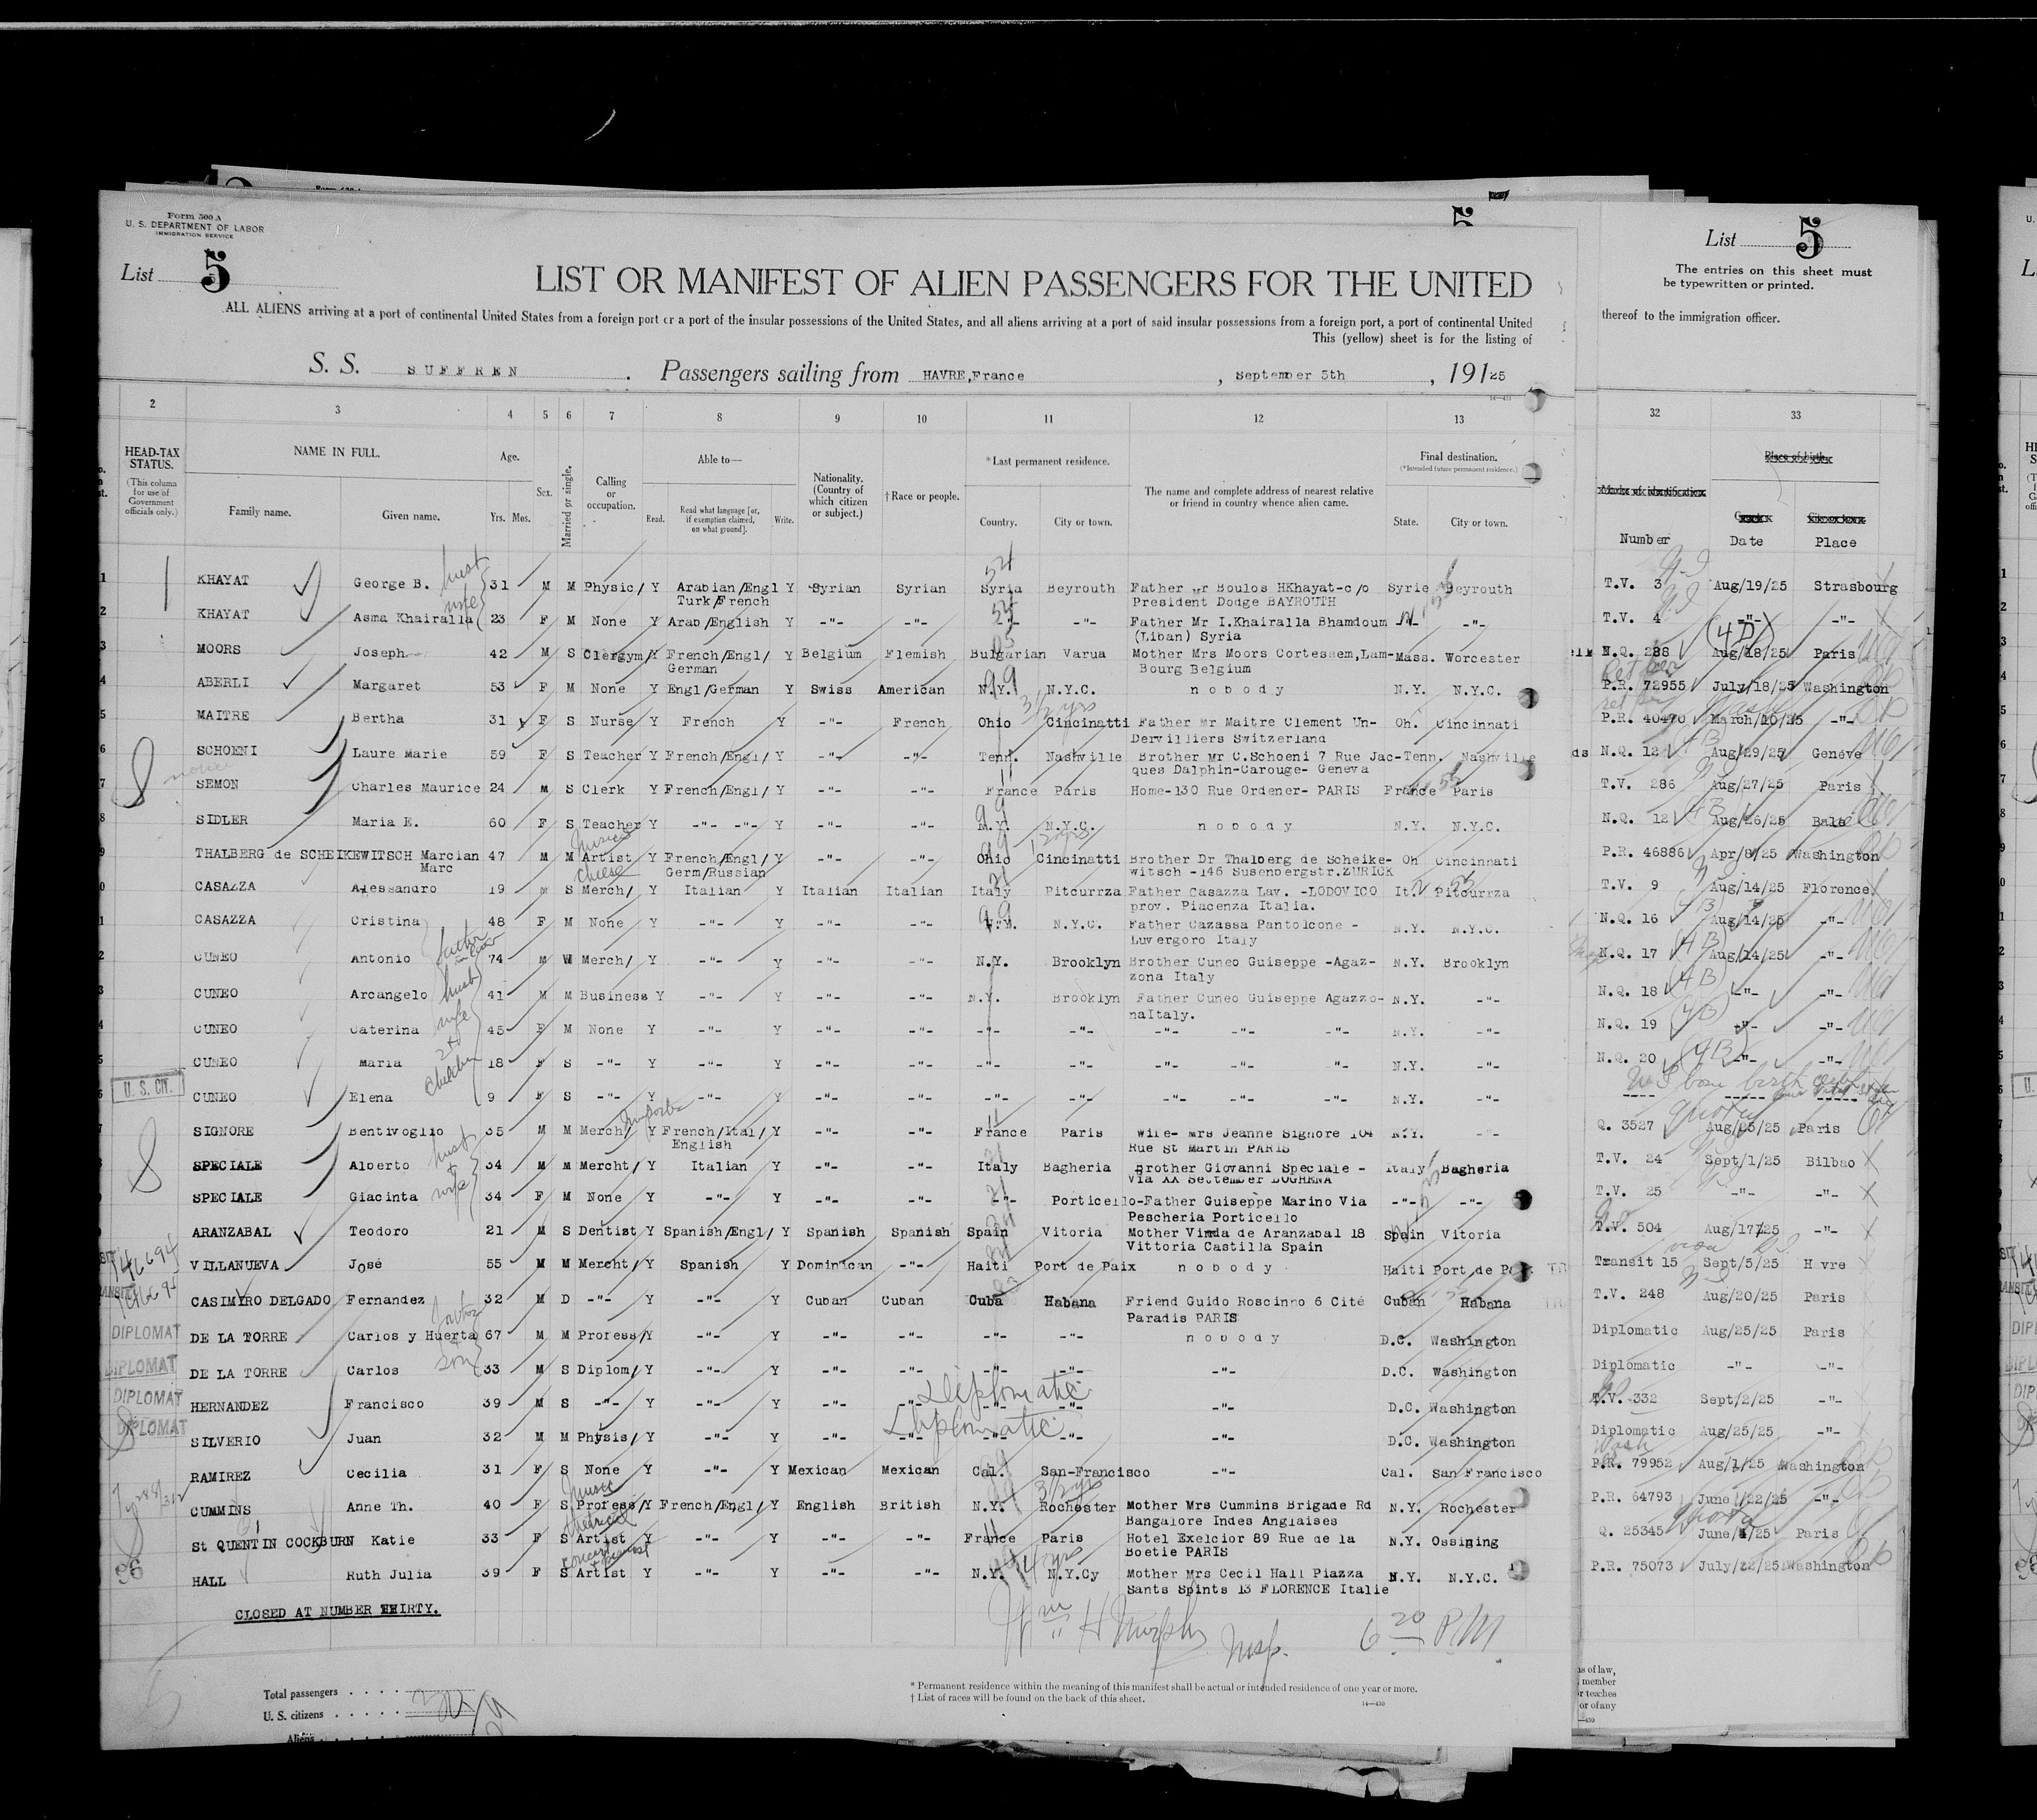 Form 500 A
U. S. DEPARTMENT OF LABOR
IMMIGRATION SERVICE
List 5
5
List 5
The entries on this sheet must
be typewritten or printed.
LIST OR MANIFEST OF ALIEN PASSENGERS FOR THE UNITED
ALL ALIENS arriving at a port of continental United States from a foreign port or a port of the insular possessions of the United States, and all aliens arriving at a port of said insular possessions from a foreign port, a port of continental United
thereof to the immigration officer.
This (yellow) sheet is for the listing of
S. S. SUFFREN. Passengers sailing from HAVRE,France, September 5th, 19125
14—431
2 3 4 5 6 7 8 9 10 11 12 13 32 33
HEAD-TAX STATUS. (This column for use of Government officials only.)
NAME IN FULL. Family name. Given name.
Age. Yrs. Mos.
Sex.
Married or single.
Calling or occupation.
Able to— Read. Read what language [or, if exemption claimed, on what ground]. Write.
Nationality. (Country of which citizen or subject.)
†Race or people.
*Last permanent residence. Country. City or town.
The name and complete address of nearest relative or friend in country whence alien came.
Final destination. (*Intended future permanent residence.) State. City or town.
Marks of identification Number
Place of birth Date Place
1 KHAYAT George B. husb 31 M M Physic/ Y Arabian/Engl Y Syrian Syrian Syria Beyrouth Father Mr Boulos HKhayat-c/o Syrie Beyrouth T.V. 3 Aug/19/25 Strasbourg
Turk/French President Dodge BAYROUTH
2 KHAYAT Asma Khairalla wife 23 F M None Y Arab/English Y -"- -"- -"- -"- Father Mr I.Khairalla Bhamdoum -"- -"- T.V. 4 -"- -"-
(Liban) Syria
3 MOORS Joseph 42 M S Clergym/ Y French/Engl/ Y Belgium Flemish Bulgarian Varua Mother Mrs Moors Cortessem,Lam- Mass. Worcester N.Q. 288 (4D) Aug/18/25 Paris
German Bourg Belgium
4 ABERLI Margaret 53 F M None Y Engl/German Y Swiss American N.Y. N.Y.C. nobody N.Y. N.Y.C. P.R. 72955 July/18/25 Washington
5 MAITRE Bertha 31 F S Nurse Y French Y -"- French Ohio Cincinatti Father Mr Maitre Clement Un- Oh. Cincinnati P.R. 40470 March/10/25 -"-
Dervilliers Switzerland
6 SCHOENI Laure Marie 59 F S Teacher Y French/Engl/ Y -"- -"- Tenn. Nashville Brother Mr C.Schoeni 7 Rue Jac- Tenn. Nashville N.Q. 12 (4B) Aug/29/25 Genéve
ques Dalphin-Carouge- Geneva
7 SEMON Charles Maurice 24 M S Clerk Y French/Engl/ Y -"- -"- France Paris Home-130 Rue Ordener- PARIS France Paris T.V. 286 Aug/27/25 Paris
8 SIDLER Maria E. 60 F S Teacher Y -"- -"- Y -"- -"- N.Y. N.Y.C. nobody N.Y. N.Y.C. N.Q. 12 4B Aug/26/25 Bale
9 THALBERG de SCHEIKEWITSCH Marcian 47 M M Artist Y French/Engl/ Y -"- -"- Ohio Cincinatti Brother Dr Thalberg de Scheike- Oh Cincinnati P.R. 46886 Apr/8/25 Washington
Marc Germ/Russian witsch -146 Susenbergstr.ZURICK
0 CASAZZA Alessandro 19 M S Merch/ Y Italian Y Italian Italian Italy Pitcurrza Father Casazza Lav. -LODOVICO It. Pitcurrza T.V. 9 Aug/14/25 Florence
prov. Piacenza Italia.
1 CASAZZA Cristina 48 F M None Y -"- Y -"- -"- N.Y. N.Y.C. Father Cazassa Pantolcone - N.Y. N.Y.C. N.Q. 16 4B Aug/14/25 -"-
Luvergoro Italy
2 CUNEO Antonio 74 M W Merch/ Y -"- Y -"- -"- N.Y. Brooklyn Brother Cuneo Guiseppe -Agaz- N.Y. Brooklyn N.Q. 17 (4B) Aug/14/25 -"-
zona Italy
3 CUNEO Arcangelo husb 41 M M Business Y -"- Y -"- -"- N.Y. Brooklyn Father Cuneo Guiseppe Agazzo- N.Y. -"- N.Q. 18 (4B) -"- -"-
naItaly.
4 CUNEO Caterina wife 45 F M None Y -"- Y -"- -"- -"- -"- -"- -"- -"- N.Y. -"- N.Q. 19 (4B) -"- -"-
5 CUNEO Maria 18 F S -"- Y -"- Y -"- -"- -"- -"- -"- -"- "- N.Y. -"- N.Q. 20 (4B) -"- -"-
children
U. S. CIT.
CUNEO Elena 9 F S -"- Y -"- Y -"- -"- -"- -"- -"- -"- -"- N.Y. -"- ---- U S born birth
7 SIGNORE Bentivoglio 35 M M Merch/ Y French/Ital/ Y -"- -"- France Paris Wife- Mrs Jeanne Signore 104 N.Y. -"- Q. 3527 quota Aug/25/25 Paris
English Rue St Martin PARIS
SPECIALE Alberto husb 34 M M Mercht/ Y Italian Y -"- -"- Italy Bagheria Brother Giovanni Speciale - Italy Bagheria T.V. 24 Sept/1/25 Bilbao
Via XX Settember BOGHENA
SPECIALE Giacinta wife 34 F M None Y -"- Y -"- -"- -"- Porticello-Father Guiseppe Marino Via -"- -"- T.V. 25 -"- -"-
Pescheria Porticello
ARANZABAL Teodoro 21 M S Dentist Y Spanish/Engl/ Y Spanish Spanish Spain Vitoria Mother Vinda de Aranzabal 18 Spain Vitoria T.V. 504 Aug/17/25 -"-
Vittoria Castilla Spain
VILLANUEVA José 55 M M Mercht/ Y Spanish Y Dominican -"- Haiti Port de Paix nobody Haiti Port de Transit 15 Sept/5/25 Havre
CASIMYRO DELGADO Fernandez 32 M D -"- Y -"- Y Cuban Cuban Cuba Habana Friend Guido Roscinno 6 Cité Cuban Habana T.V. 248 Aug/20/25 Paris
Paradis PARIS
DIPLOMAT DE LA TORRE Carlos y Huerta 67 M M Profess/ Y -"- Y -"- -"- -"- -"- nobody D.C. Washington Diplomatic Aug/25/25 Paris
DIPLOMAT DE LA TORRE Carlos son 33 M S Diplom/ Y -"- Y -"- -"- -"- -"- -"- D.C. Washington Diplomatic -"- -"-
DIPLOMAT HERNANDEZ Francisco 39 M S -"- Y -"- Y -"- -"- Diplomatic -"- -"- -"- D.C. Washington T.V. 332 Sept/2/25 -"-
DIPLOMAT SILVERIO Juan 32 M M Physis/ Y -"- Y -"- -"- Diplomatic -"- -"- -"- D.C. Washington Diplomatic Aug/25/25 -"-
RAMIREZ Cecilia 31 F S None Y -"- Y Mexican Mexican Cal. San-Francisco -"- Cal. San Francisco P.R. 79952 Aug/1/25 Washington
CUMMINS Anne Th. 40 F S Profess/ Y French/Engl/ Y English British N.Y. Rochester Mother Mrs Cummins Brigade Rd N.Y. Rochester P.R. 64793 June/22/25 -"-
Bangalore Indes Anglaises
St QUENTIN COCKBURN Katie 33 F S Artist Y -"- Y -"- -"- France Paris Hotel Exelcior 89 Rue de la N.Y. Ossining Q. 25345 June/4/25 Paris
Boetie PARIS
HALL Ruth Julia 39 F S Artist Y -"- Y -"- -"- N.Y. N.Y.Cy Mother Mrs Cecil Hall Piazza N.Y. N.Y.C. P.R. 75073 July/22/25 Washington
Sants Spints 13 FLORENCE Italie
CLOSED AT NUMBER THIRTY.
Wm H Murphy Insp. 6 20 PM
Total passengers
U. S. citizens
Aliens
* Permanent residence within the meaning of this manifest shall be actual or intended residence of one year or more.
† List of races will be found on the back of this sheet.
14—430